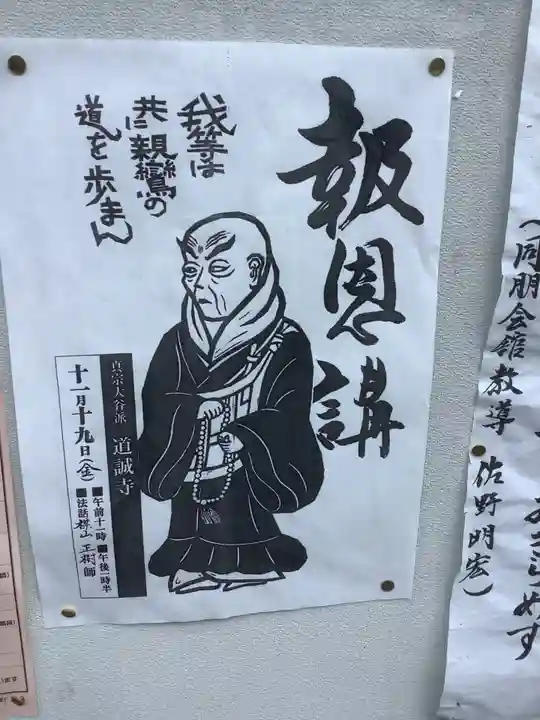 報恩講
我等は
共に親鸞の
道を歩まん
真宗大谷派 道誠寺
十一月十九日(金)
■午前十一時 ■午後一時半
■法話 山 正樹 師
(同朋会館教導 佐野明宏)
あきらめず